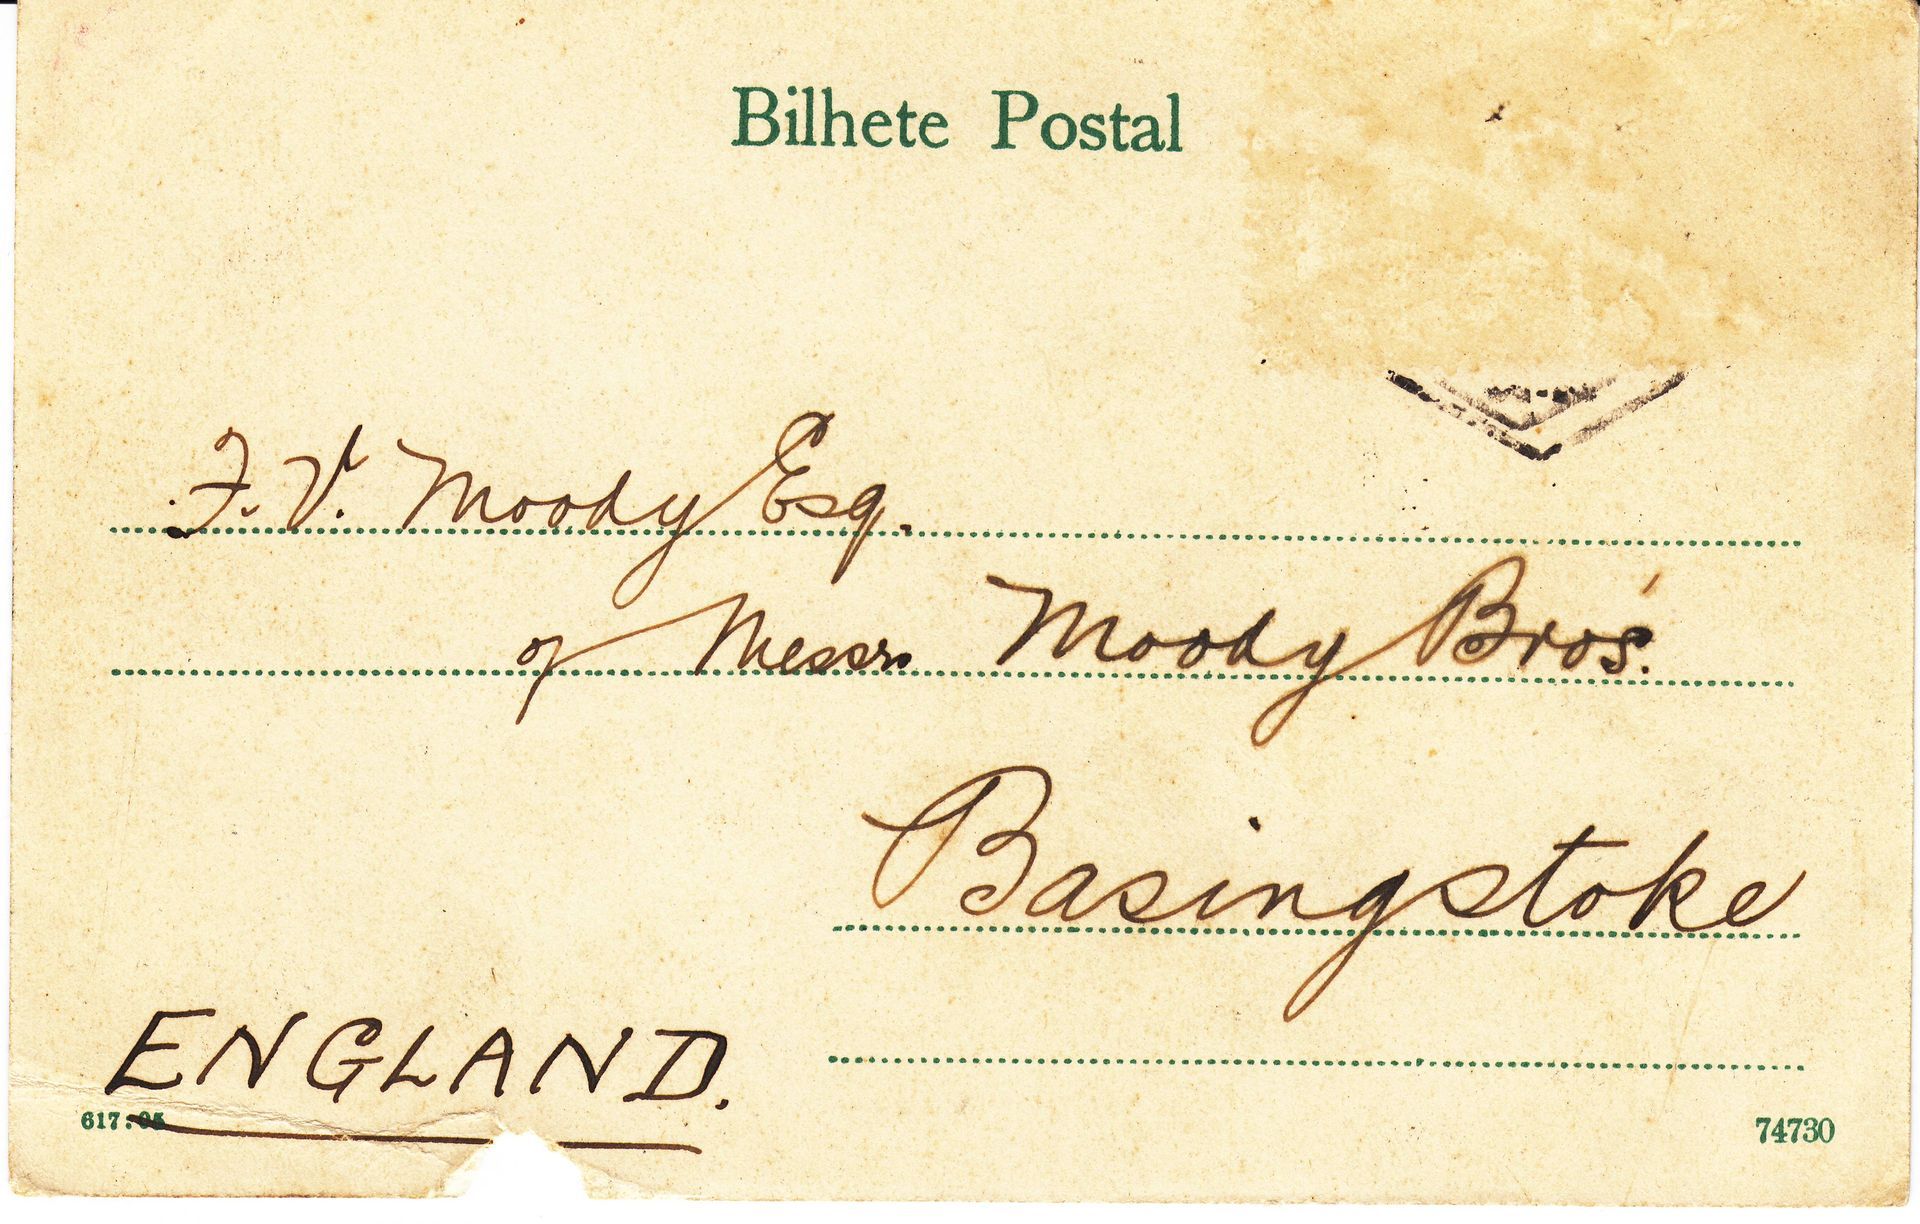 Bilhete Postal
F. V. Moody Esq.
of Messrs Moody Bros'.
Basingstoke
ENGLAND.
617:05
74730